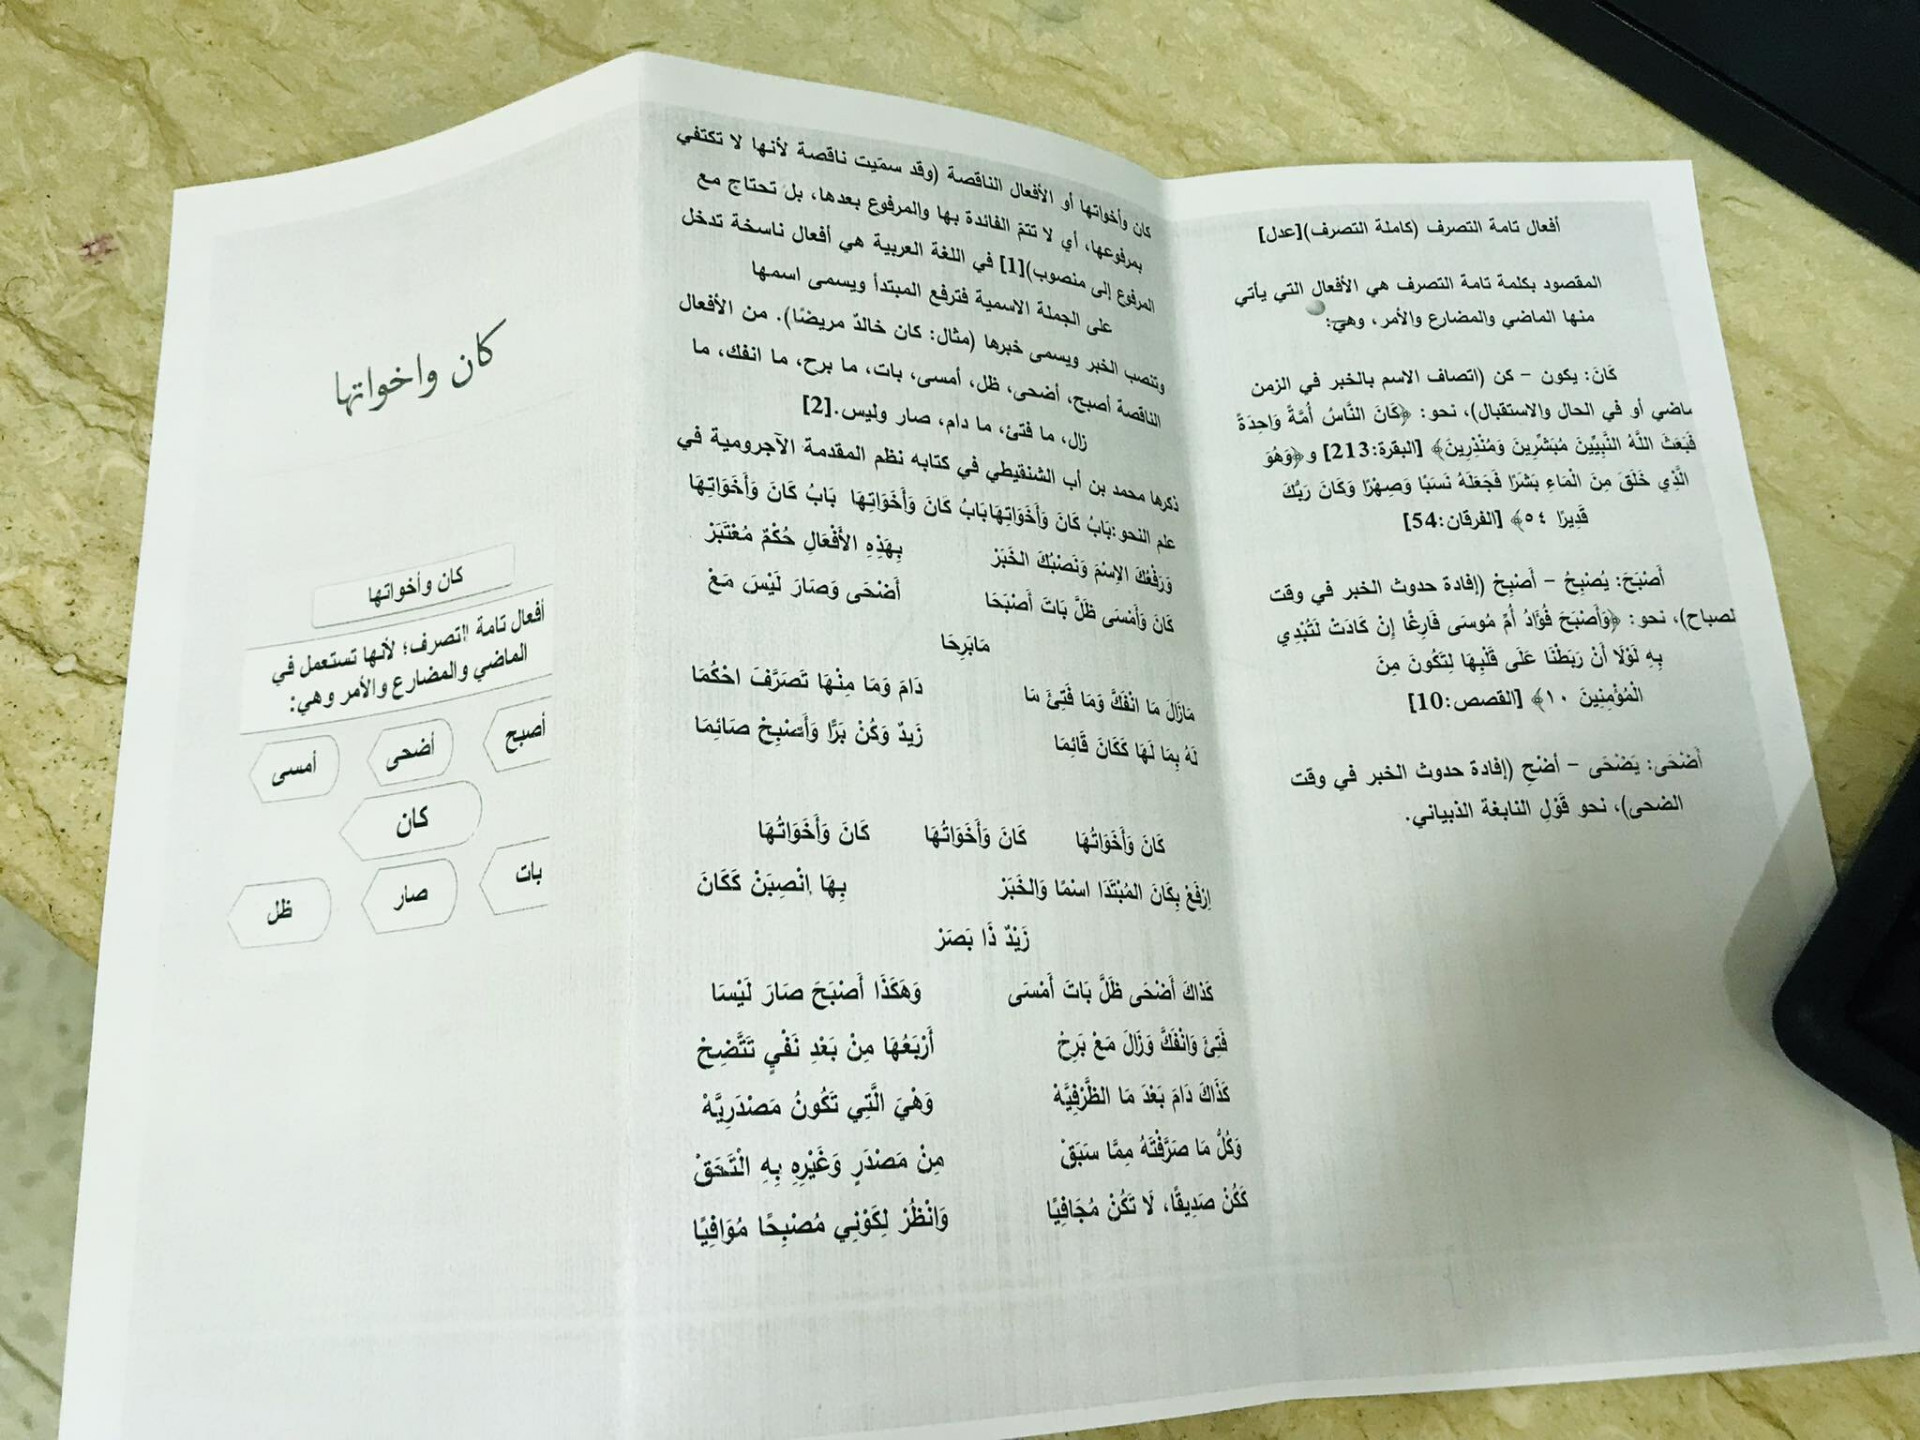 أفعال تامة التصرف (كاملة التصرف)[عدل]
المقصود بكلمة تامة التصرف هي الأفعال التي يأتي
منها الماضي والمضارع والأمر، وهي:
كَانَ: يكون – كن (اتصاف الاسم بالخبر في الزمن
ماضي أو في الحال والاستقبال)، نحو: ﴿كَانَ النَّاسُ أُمَّةً وَاحِدَةً
فَبَعَثَ اللَّهُ النَّبِيِّينَ مُبَشِّرِينَ وَمُنْذِرِينَ﴾ [البقرة:213] و﴿وَهُوَ
الَّذِي خَلَقَ مِنَ الْمَاءِ بَشَرًا فَجَعَلَهُ نَسَبًا وَصِهْرًا وَكَانَ رَبُّكَ
قَدِيرًا ٥٤﴾ [الفرقان:54]
أَصْبَحَ: يُصْبِحُ – أَصْبِحْ (إفادة حدوث الخبر في وقت
لصباح)، نحو: ﴿وَأَصْبَحَ فُؤَادُ أُمِّ مُوسَى فَارِغًا إِنْ كَادَتْ لَتُبْدِي
بِهِ لَوْلَا أَنْ رَبَطْنَا عَلَى قَلْبِهَا لِتَكُونَ مِنَ
الْمُؤْمِنِينَ ١٠﴾ [القصص:10]
أَضْحَى: يَضْحَى – أضْحِ (إفادة حدوث الخبر في وقت
الضحى)، نحو قَوْلِ النابغة الذبياني.
كان وأخواتها أو الأفعال الناقصة (وقد سمّيت ناقصة لأنها لا تكتفي
بمرفوعها، أي لا تتمّ الفائدة بها والمرفوع بعدها، بل تحتاج مع
المرفوع إلى منصوب)[1] في اللغة العربية هي أفعال ناسخة تدخل
على الجملة الاسمية فترفع المبتدأ ويسمى اسمها
وتنصب الخبر ويسمى خبرها (مثال: كان خالدٌ مريضًا). من الأفعال
الناقصة أصبح، أضحى، ظل، أمسى، بات، ما برح، ما انفك، ما
زال، ما فتئ، ما دام، صار وليس.[2]
ذكرها محمد بن أب الشنقيطي في كتابه نظم المقدمة الآجرومية في
علم النحو:بَابُ كَانَ وَأَخَوَاتِهَابَابُ كَانَ وَأَخَوَاتِهَا بَابُ كَانَ وَأَخَوَاتِهَا
وَرَفْعُكَ الِاسْمَ وَنَصْبُكَ الخَبَرْ بِهَذِهِ الأَفْعَالِ حُكْمٌ مُعْتَبَرْ
كَانَ وَأَمْسَى ظَلَّ بَاتَ أَصْبَحَا أَضْحَى وَصَارَ لَيْسَ مَعْ
مَابَرِحَا
مَازَالَ مَا انْفَكَّ وَمَا فَتِئَ مَا دَامَ وَمَا مِنْهَا تَصَرَّفَ احْكُمَا
لَهُ بِمَا لَهَا كَكَانَ قَائِمَا زَيدٌ وَكُنْ بَرًّا وَأَصْبِحْ صَائِمَا
كَانَ وَأَخَوَاتُهَا كَانَ وَأَخَوَاتُهَا كَانَ وَأَخَوَاتُهَا
اِرْفَعْ بِكَانَ المُبْتَدَا اسْمًا وَالخَبَرْ بِهَا انْصِبَنْ كَكَانَ
زَيْدٌ ذَا بَصَرْ
كَذَاكَ أَضْحَى ظَلَّ بَاتَ أَمْسَى وَهَكَذَا أَصْبَحَ صَارَ لَيْسَا
فَتِئَ وَانْفَكَّ وَزَالَ مَعْ بَرِحْ أَرْبَعُهَا مِنْ بَعْدِ نَفْيٍ تَتَّضِحْ
كَذَاكَ دَامَ بَعْدَ مَا الظَّرْفِيَّهْ وَهْيَ الَّتِي تَكُونُ مَصْدَرِيَّهْ
وَكُلُّ مَا صَرَّفْتَهُ مِمَّا سَبَقْ مِنْ مَصْدَرٍ وَغَيْرِهِ بِهِ الْتَحَقْ
كَكُنْ صَدِيقًا، لَا تَكُنْ مُجَافِيًا وَانْظُرْ لِكَوْنِي مُصْبِحًا مُوَافِيًا
كان واخواتها
كان وأخواتها
أفعال تامة التصرف؛ لأنها تستعمل في
الماضي والمضارع والأمر وهي:
أصبح أضحى أمسى
كان
بات صار ظل